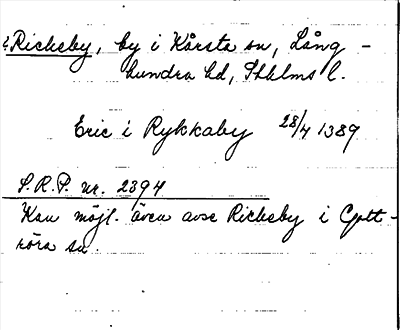 ? Rickeby, by i Kårsta sn, Lång-
hundra hd, Sthlms l.
Eric i Rykkaby 28/4 1389
S.R.P. nr. 2394
Kan möjl. även avse Rickeby i Gott-
röra sn.